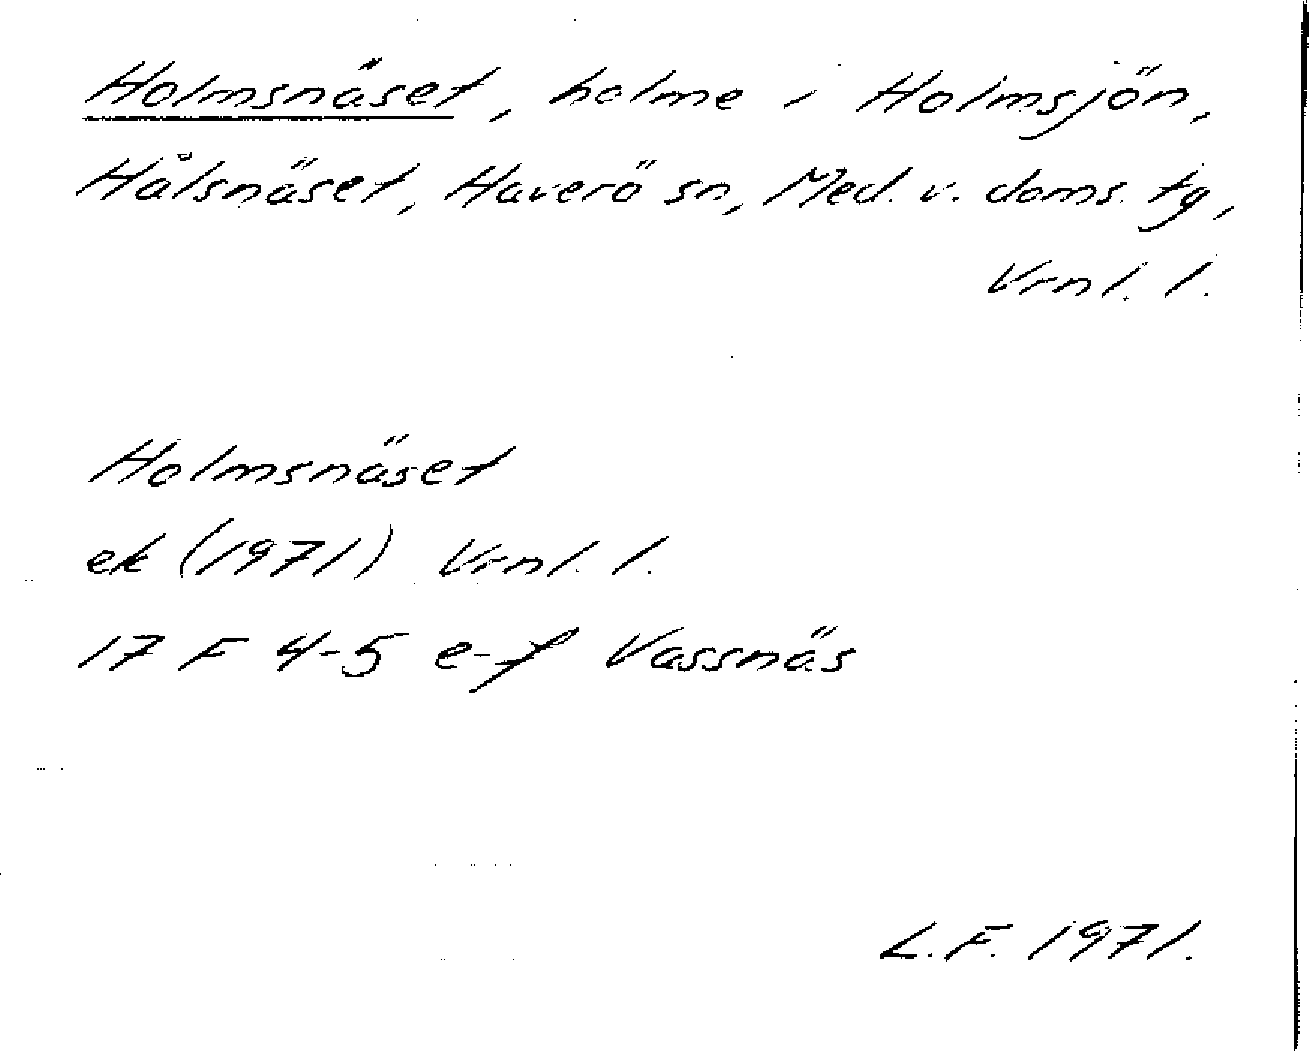 Holmsnäset, holme i Holmsjön,
Hålsnäset, Haverö sn, Med. v. doms. tg,
Vrnl. l.
Holmsnäset
ek (1971) Vrnl. l.
17 F 4-5 e-f Vassnäs
L.F. 1971.